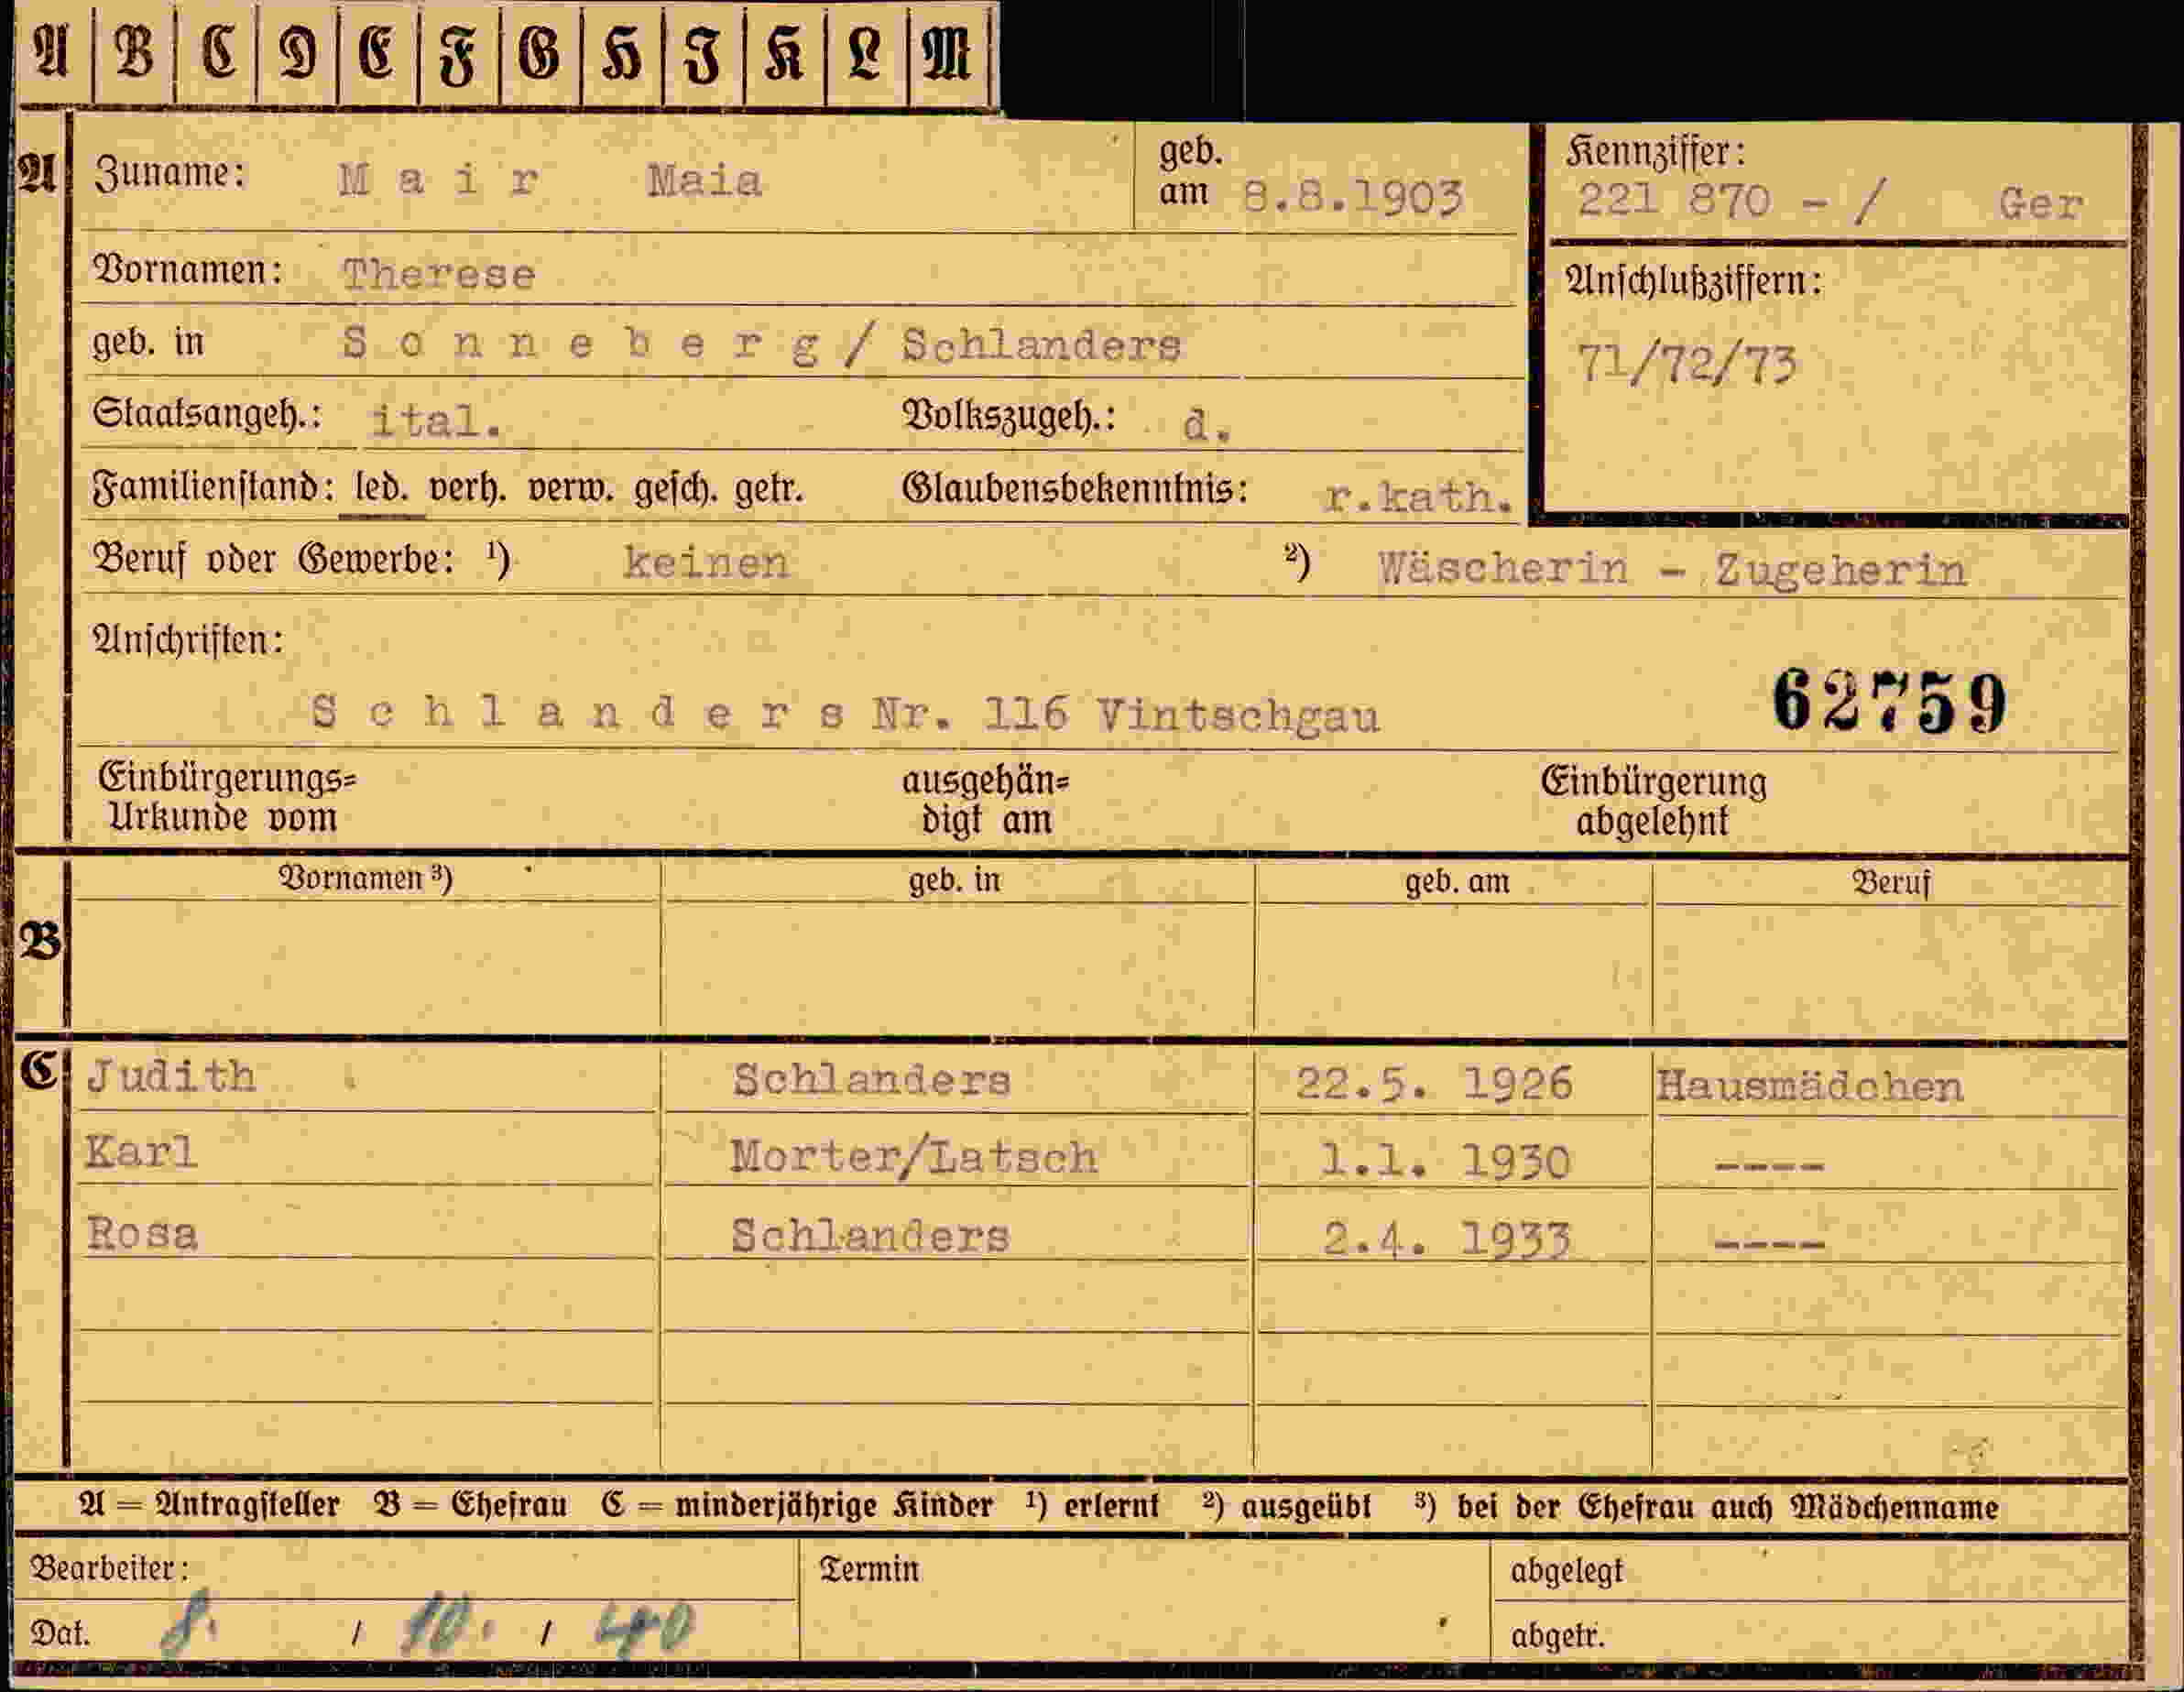 A B C D E F G H I K L M
A Zuname: M a i r Maia geb. am 8.8.1903
Kennziffer:
221 870 - / Ger
Vornamen: Therese
Anschlußziffern:
geb. in S o n n e b e r g / Schlanders
71/72/73
Staatsangeh.: ital. Volkszugeh.: d.
Familienstand: led. verh. verw. gesch. getr. Glaubensbekenntnis: r.kath.
Beruf oder Gewerbe: ¹) keinen ²) Wäscherin - Zugeherin
Anschriften:
S c h l a n d e r s Nr. 116 Vintschgau 62759
Einbürgerungs= ausgehän= Einbürgerung
Urkunde vom digt am abgelehnt
Vornamen ³) geb. in geb. am Beruf
B
C Judith Schlanders 22.5. 1926 Hausmädchen
Karl Morter/Latsch 1.1. 1930 ----
Rosa Schlanders 2.4. 1933 ----
A = Antragsteller B = Ehefrau C = minderjährige Kinder ¹) erlernt ²) ausgeübt ³) bei der Ehefrau auch Mädchenname
Bearbeiter: Termin abgelegt
Dat. 8. / 10. / 40 abgetr.